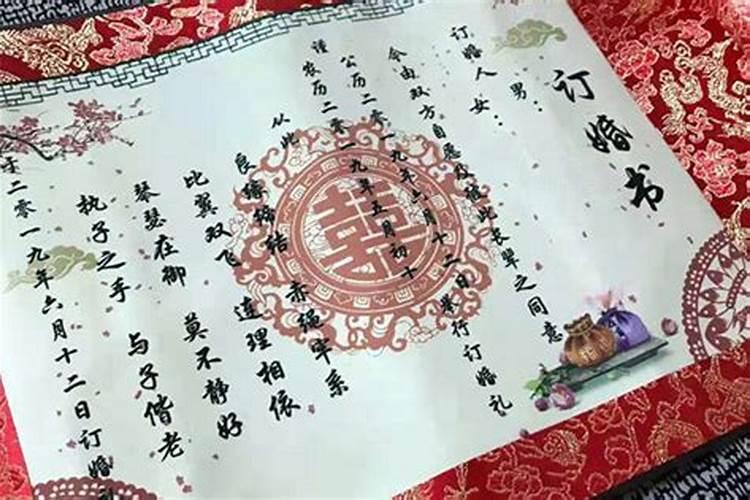 订婚书
订婚人 男:
女:
今由双方自愿及 此长辈之同意
谨
公历二零一九年六月十二日举行订婚礼
农历二零一九年五月初十
从此
良缘缔结 赤绳牢系
比翼双飞 连理相依
琴瑟在御 莫不静好
执子之手 与子偕老
于二零一九年六月十二日订婚